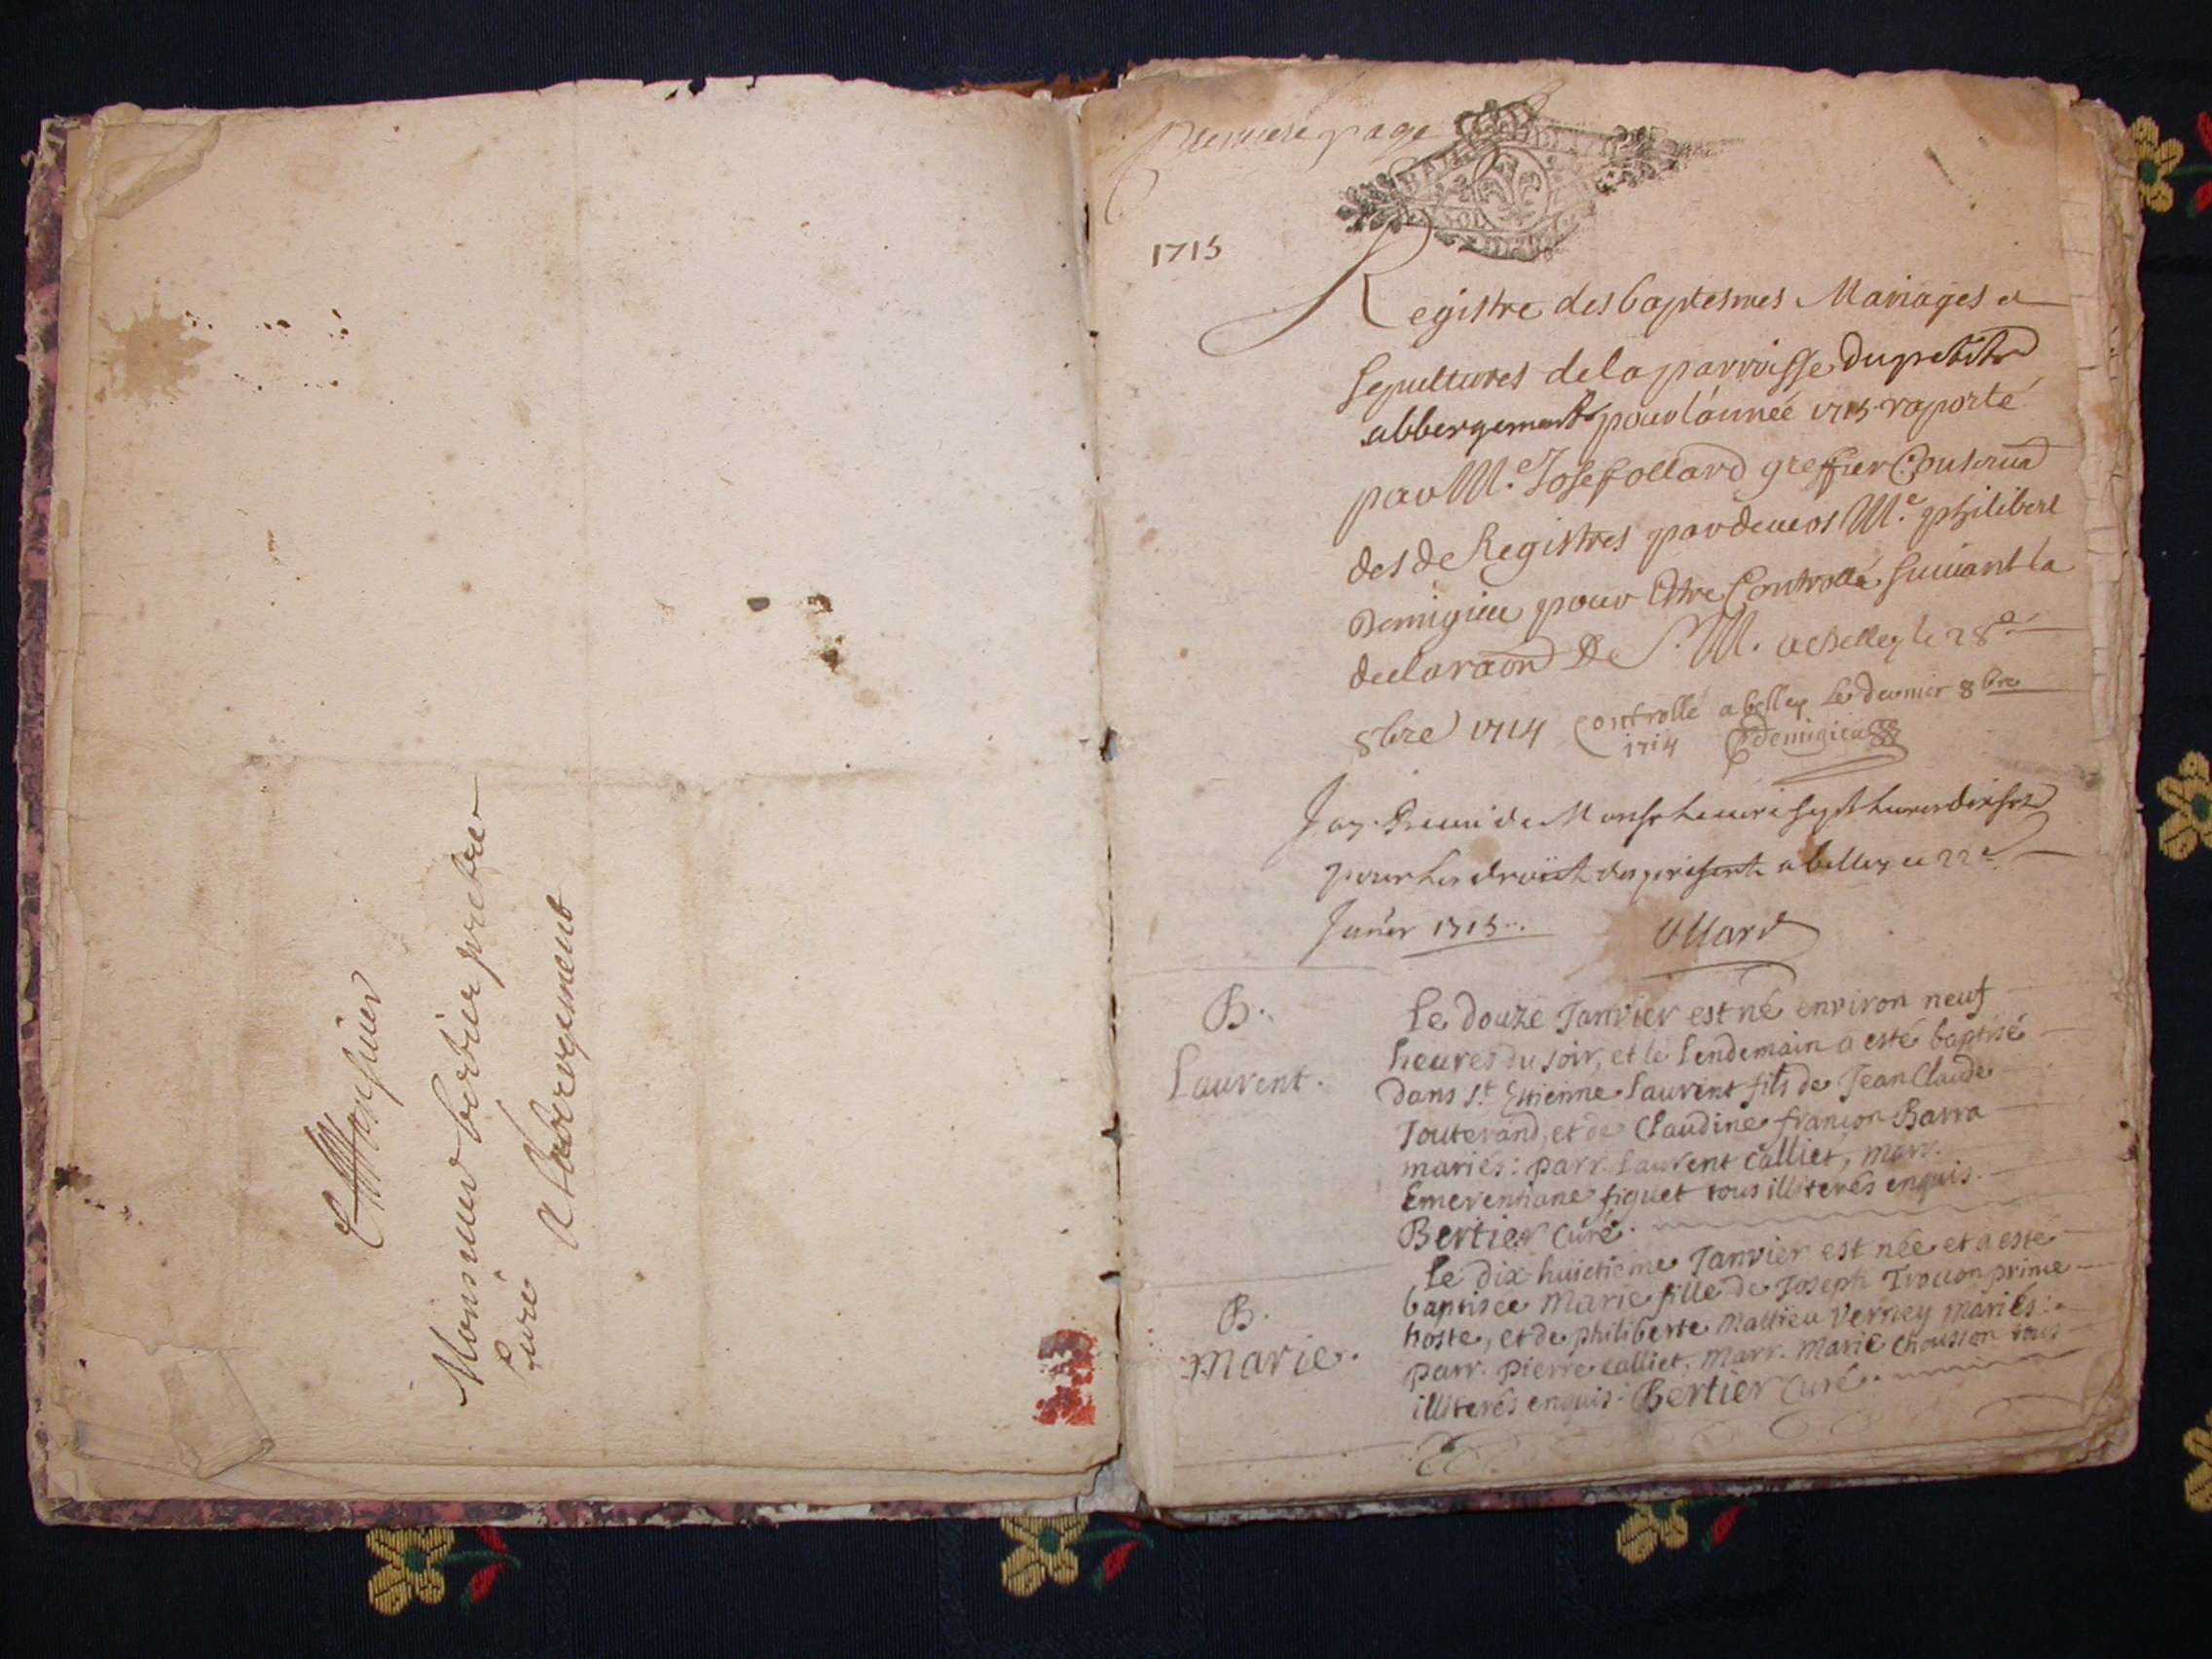 Monsieur
Monsieur bertier prebtre
Curé
a abbergement
Premiere page
1715
Registre des baptesmes Mariages et
Sepultures de la parroisse du petit
abbergement pour l'année 1715 raporté
par Me. Josef ollard greffier
des de Registres par devers Me. philibert
Demigieu pour Etre Controllé suivant la
declaraon De S. M. a belley le 28e
8bre 1714 Controllé a belley Le dernier 8bre
1714 Demigieu
Jay Receu de
pour les droict du present a belley ce 22e
Janier 1715.
Ollard
B.
Laurent.
Le douze Janvier est né environ neuf
heures du soir, et le lendemain a esté baptisé
dans St. Estienne Laurent fils de Jean Claude
Jouterand, et de Claudine françon Barra
mariés: parr. Laurent Calliet, marr.
Emerentiane figuet tous illiterés enquis.
Bertier Curé.
B.
Marie.
Le dix huictieme Janvier est née et a esté
baptisée Marie fille de Joseph Trocon prime
hoste, et de philiberte Mathieu Verney mariés:
parr. Pierre Calliet, Marr. Marie Chousson tous
illiterés enquis. Bertier Curé.